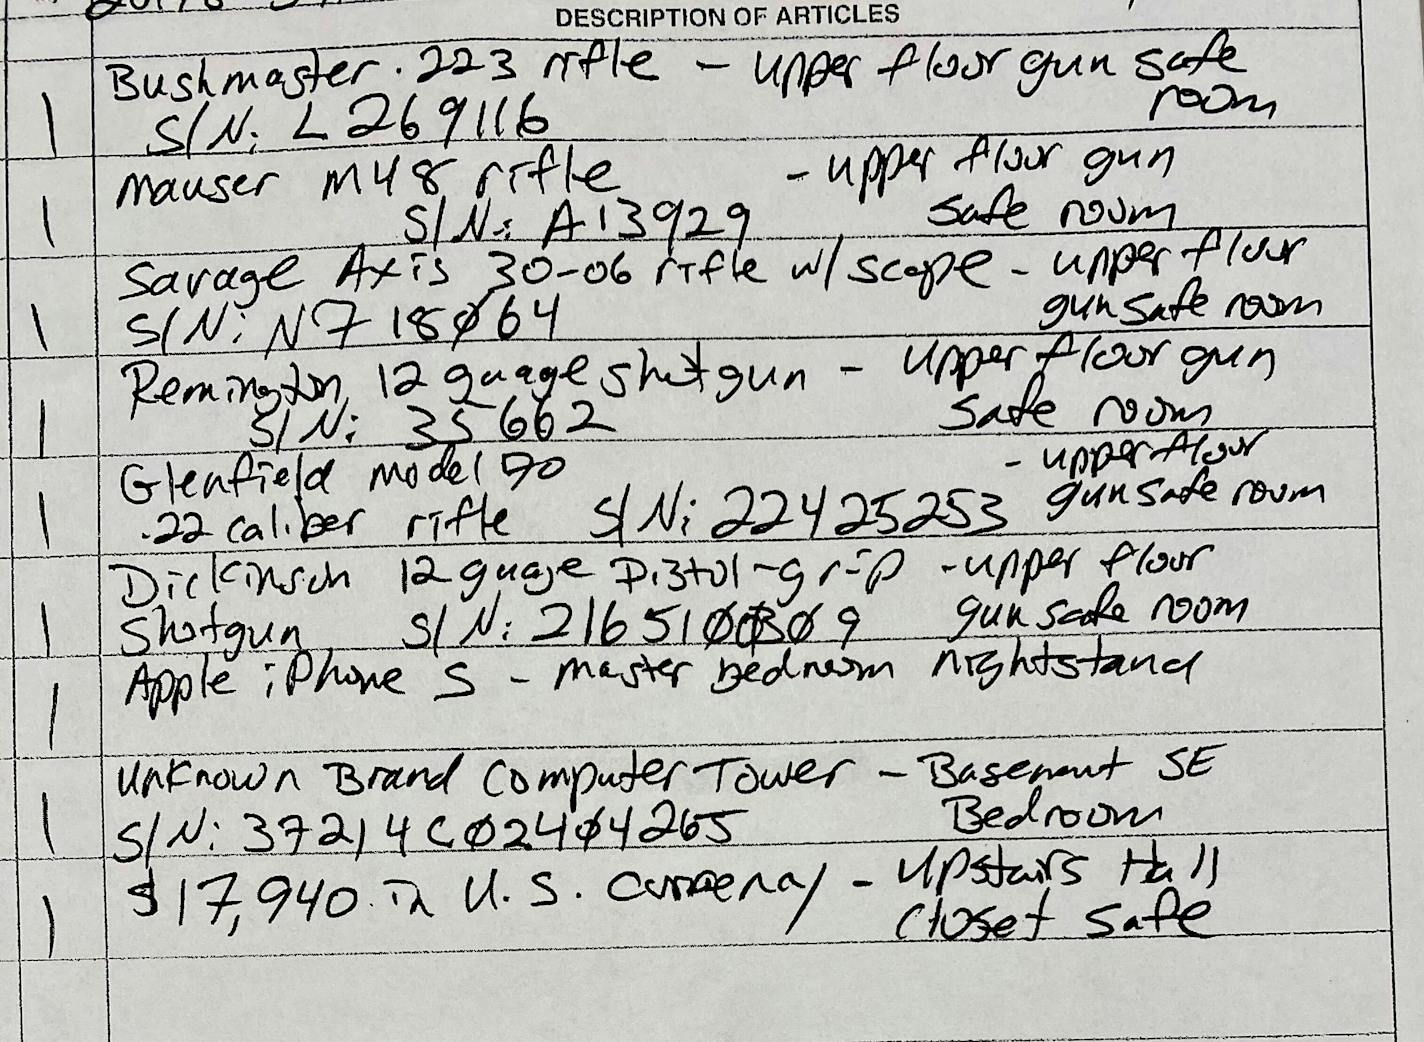 DESCRIPTION OF ARTICLES
1 Bushmaster .223 rifle - upper floor gun safe
room
S/N: L269116
1 Mauser M48 rifle - upper floor gun
S/N: A13929 safe room
1 Savage Axis 30-06 rifle w/ scope - upper floor
S/N: N718064 gun safe room
1 Remington 12 guage shotgun - upper floor gun
S/N: 35662 safe room
1 Glenfield model 70 - upper floor
.22 caliber rifle S/N: 22425253 gun safe room
1 Dickinson 12 guage pistol-grip - upper floor
Shotgun S/N: 216510 09 gun safe room
1 Apple iPhone S - master Bedroom nightstand
1 Unknown Brand Computer Tower - Basement SE
S/N: 37214C02404265 Bedroom
1 $17,940 in U.S. Currency - Upstairs Hall
Closet safe